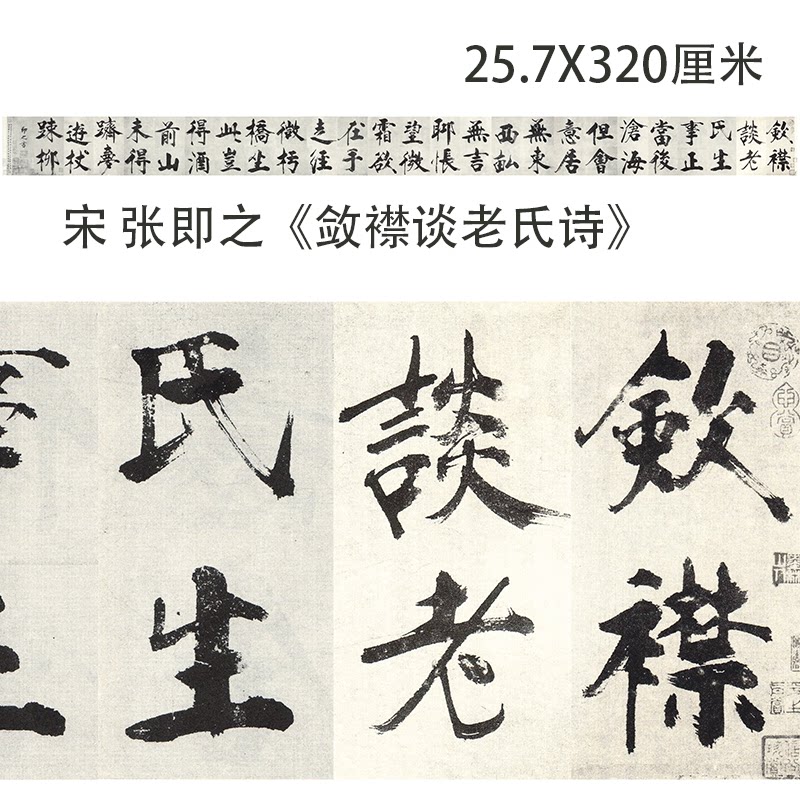 25.7X320厘米
斂襟
談老
氏生
事正
當後
滄海
但會
意居
無東
西
無言
耶悵
望微
霜欲
在手
徑
微
橋坐
此豈
得酒
前山
未得
躋喜
遊杖
踈柳
宋 张即之《敛襟谈老氏诗》
斂襟
談老
氏生